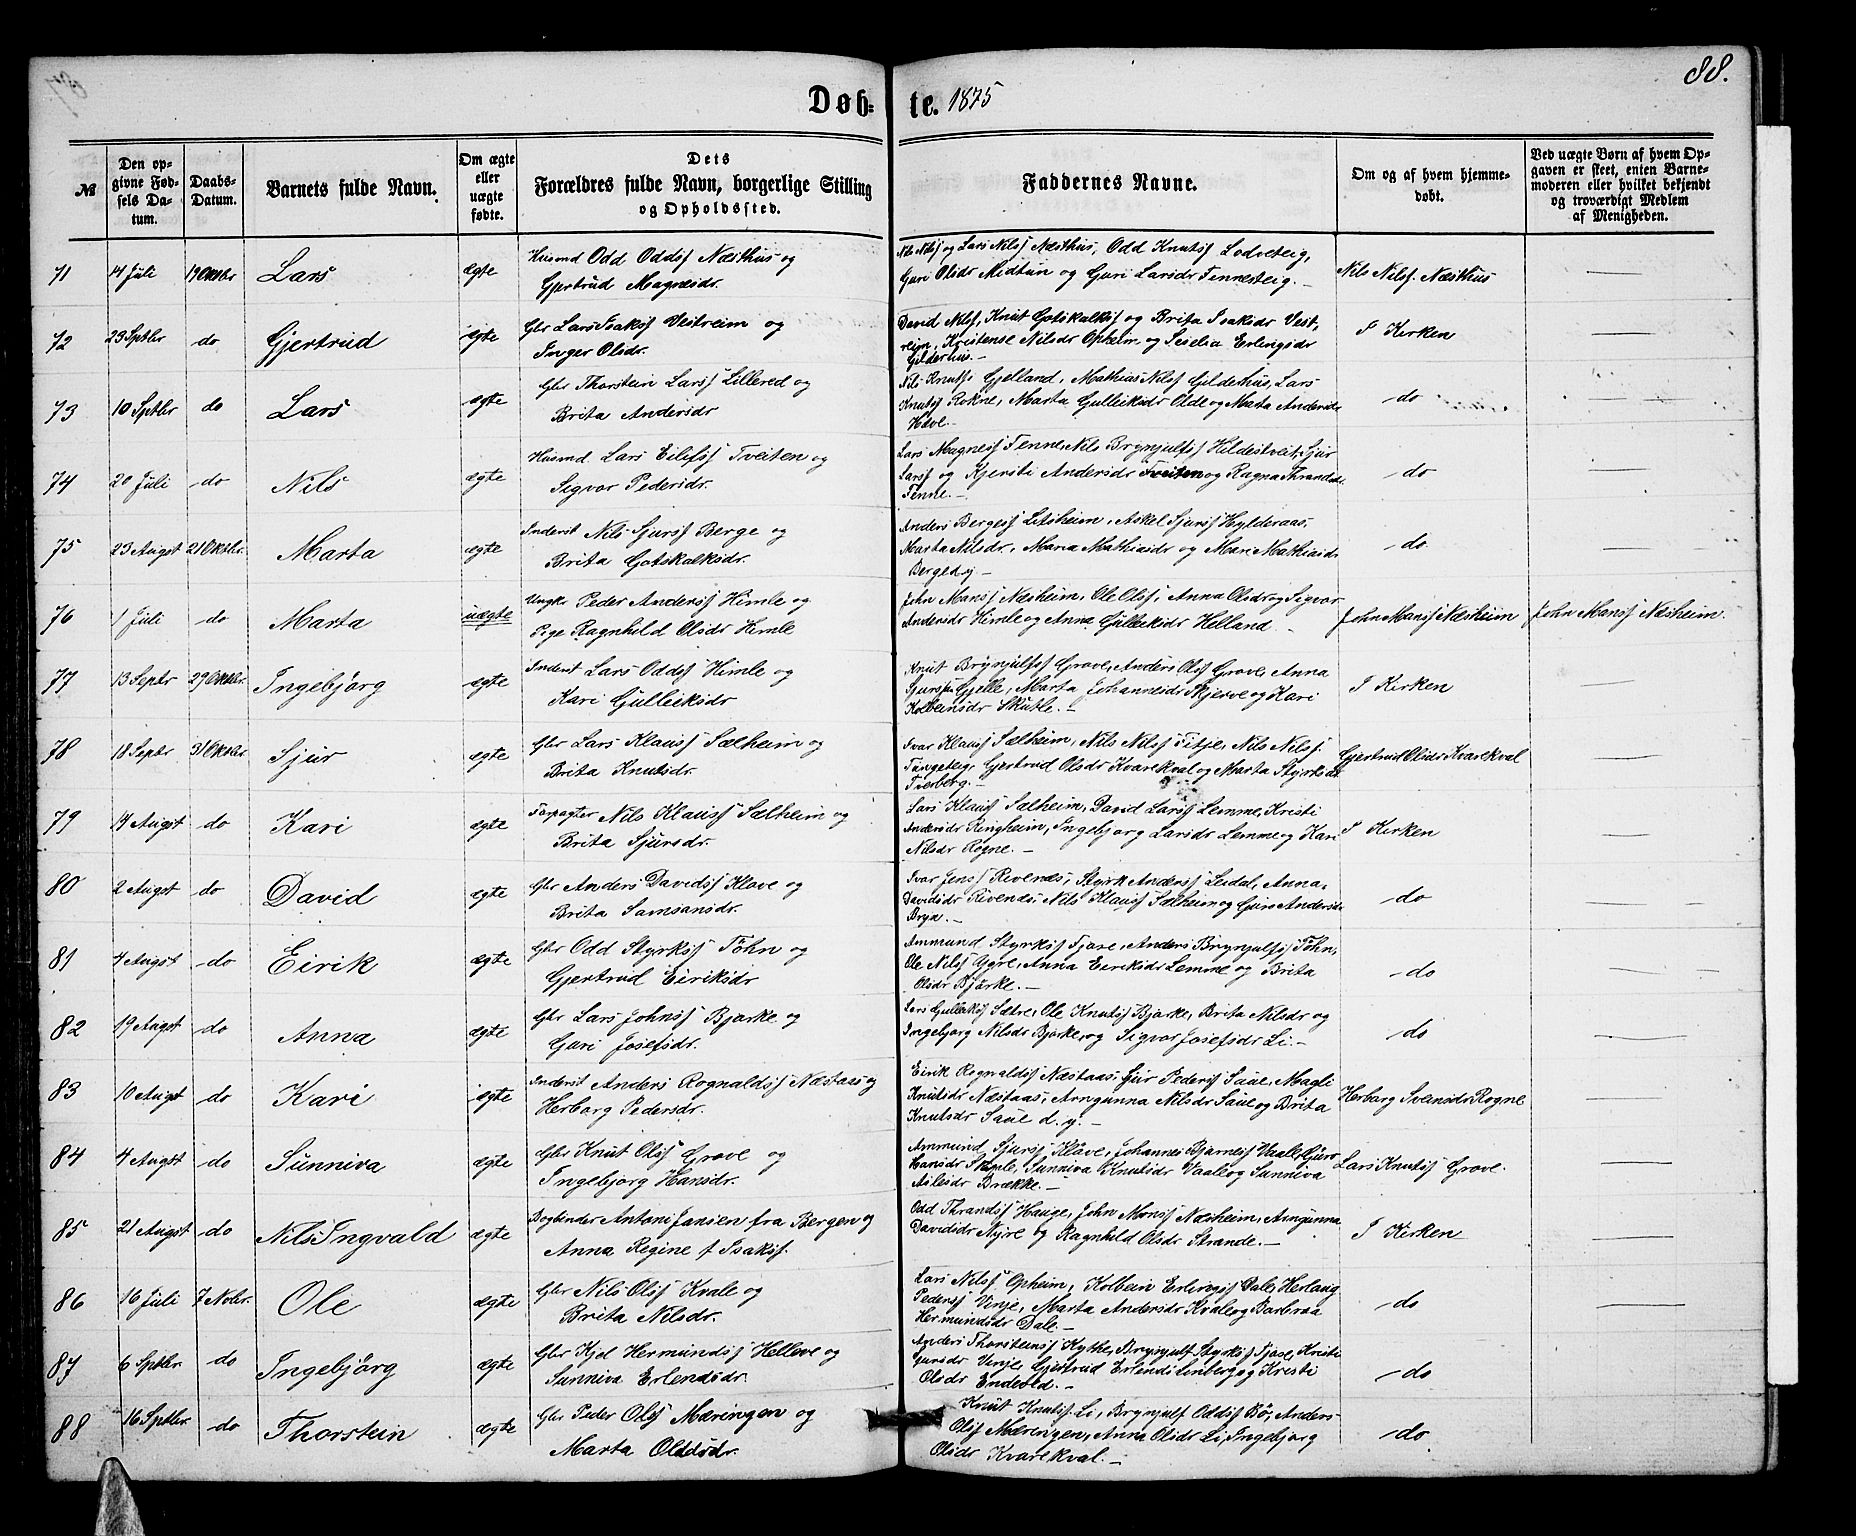 88.
Døb-te. 1875
№
Den opgivne Fødsels Datum.
Daabs-Datum.
Barnets fulde Navn.
Om ægte eller uægte fødte.
Dets Forældres fulde Navn, borgerlige Stilling og Opholdssted.
Faddernes Navne.
Om og af hvem hjemmedøbt.
Ved uægte Børn af hvem Opgaven er skeet, enten Barnemoderen eller hvilket bekjendt og troværdigt Medlem af Menigheden.
71 14 Juli 17 Oktbr Lars ægte Husmd Odd Oddsf Næsthus og
Gjertrud Magnesdr.
Nils Nilsf og Lars Nilsf Næsthus, Odd Knutsf Lodveteig,
Guri Olsdr Midtun og Guri Larsdr Tennesteig. —
Nils Nilsf. Næsthus —
72 23 Septbr do Gjertrud ægte Gbr Lars Isaksf Vestreim og
Inger Olsdr.
David Nilsf, Knut Gotskalksf og Brita Isaksdr Vest,
reim, Kristense Nilsdr Opheim og Seselia Erlingsdr
Gilderhus. —
I Kirken —
73 10 Septbr do Lars ægte Gbr Thorstein Larsf Lillered og
Brita Andersdr
Nils Knutsf Gjelland, Mathias Nilsf Gilderhus, Lars
Knutsf Rokne, Marta Gulleiksdr Olde og Marta Andersdr
Hæve. —
do —
74 20 Juli do Nils ægte Husmd. Lars Eilifsf Tveiten og
Sigvor Pedersdr.
Lars Magnesf Tenne, Nils Brynjulfsf Hildestveit, Sjur
Larsf og Kjersti Andersdr Tveiten og Ragna Thrandsdr
Tenne. —
do —
75 23 Augst 21 Oktbr. Marta ægte Inderst Nils Sjursf Berge og
Brita Gotskalksdr.
Anders Bergesf Litsheim, Askel Sjursf Hylderaas,
Marta Nilsdr, Maria Mathiasdr og Mari Mathiasdr
Berge d.y. —
do —
76 1 Juli do Marta uægte Ungk. Peder Andersf Himle og
Pige Ragnhild Olsdr Himle
John Monsf Næsheim, Ole Olsf, Anna Olsdr og Sigvor
Andersdr Himle og Anna Gulleiksdr Helland —
John Monsf Næsheim John Monsf Næsheim.
77 13 Septbr 29 Oktbr. Ingebjørg ægte Inderst Lars Oddsf Himle og
Kari Gulleiksdr
Knut Brynjulfsf Grove, Anders Olsf Grove, Anna
Sjursdr Gjelle, Marta Johannesdr Skjerve og Kari
Kolbeinsdr Skutle. —
I Kirken —
78 18 Septbr 31 Oktbr. Sjur ægte Gbr Lars Klausf Sælheim og
Brita Knutsdr.
Ivar Klausf Sælheim, Nils Nilsf Titje, Nils Nilsf
Tungeteig, Gjertrud Olsdr Kvarekval og Marta Styrksdr
Tverberg. —
Gjertrud Olsdr Kvarekval —
79 14 Augst do Kari ægte Forpagter Nils Klausf Sælheim og
Brita Sjursdr.
Lars Klausf Sælheim, David Larsf Lemme, Kristi
Andersdr Ringheim, Ingebjørg Larsdr Lemme og Kari
Nilsdr Rogne. —
I Kirken —
80 2 Augst do David ægte Gbr Anders Davidsf Klove og
Brita Samsonsdr.
Ivar Jensf Rivenæs, Styrk Andersf Leidal, Anna
Davidsdr Rivenæs, Nils Klausf Sælheim og Guro Andersdr
Bryn. —
do —
81 4 Augst do Eirik ægte Gbr Odd Styrksf Tøhn og
Gjertrud Eiriksdr
Ammund Styrksf Tjose, Anders Brynjulfsf Tøhn,
Ole Nilsf Ygre, Anna Eiriksdr Lemme og Brita
Olsdr Bjørke. —
do —
82 19 Augst do Anna ægte Gbr Lars Johnsf Bjørke og
Guri Josefsdr.
Lars Gulleiksf Sætre, Ole Knutsf Bjørke, Brita Nilsdr og
Ingebjørg Nilsdr Bjørke, og Sigvor Josefsdr Li. —
do —
83 10 Augst do Kari ægte Inderst Anders Rognaldsf Næstaas og
Herborg Pedersdr.
Eirik Rognaldsf Næstaas, Sjur Pedersf Saue, Magli
Knutsdr Næstaas, Arngunna Nilsdr Saue og Brita
Knutsdr Saue d.y. —
Herborg Svensdr Rogne —
84 4 Augst do Sunniva ægte Gbr Knut Olsf Grove og
Ingebjørg Hansdr.
Ammund Sjursf Klove, Johannes Bjarnesf Vaale, Guro
Hansdr, Sunniva Knutsdr Vaale og Sunniva
Aslesdr Brække. —
Lars Knutsf Grove. —
85 21 Augst do Nils Ingvald ægte Bogbinder Antoni Jansen fra Bergen og
Anna Regine f Isaksf.
Odd Thrandsf Hauge, John Monsf Næsheim, Arngunna
Davidsdr Nyre og Ragnhild Olsdr Strande. —
I Kirken —
86 16 Juli 7 Novbr. Ole ægte Gbr Nils Olsf Kvale og
Brita Nilsdr.
Lars Nilsf Opheim, Kolbein Erlingsf Dale, Herlaug
Pedersf Vinje, Marta Andersdr Kvale og Barbraa
Hermundsdr Dale. —
do —
87 6 Septbr. do Ingebjørg ægte Gbr Kjel Hermundsf Helleve og
Sunniva Erlendsdr.
Anders Thorsteinsf Kythe, Brynjulf Styrksf Tjose, Kristi
Gursdr Vinje, Gjertrud Erlendsd Lenberg og Kristi
Olsdr Endeved. —
do
88 16 Septbr. do Thorstein ægte Gbr Peder Olsf Mæringen og
Marta Oldsdr.
Knut Knutsf Li, Brynjulf Oddsf Bø, Anders
Olsf Mæringen, Anna Olsdr Li, Ingebjørg
Olsdr Kvarekval. —
do